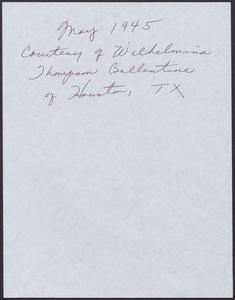 May 1945
Courtesy of Wilhelmina
Thompson Ballentine
of Houston, TX